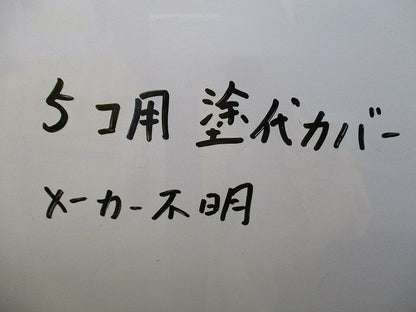 5コ用 塗代カバー
メーカー不明